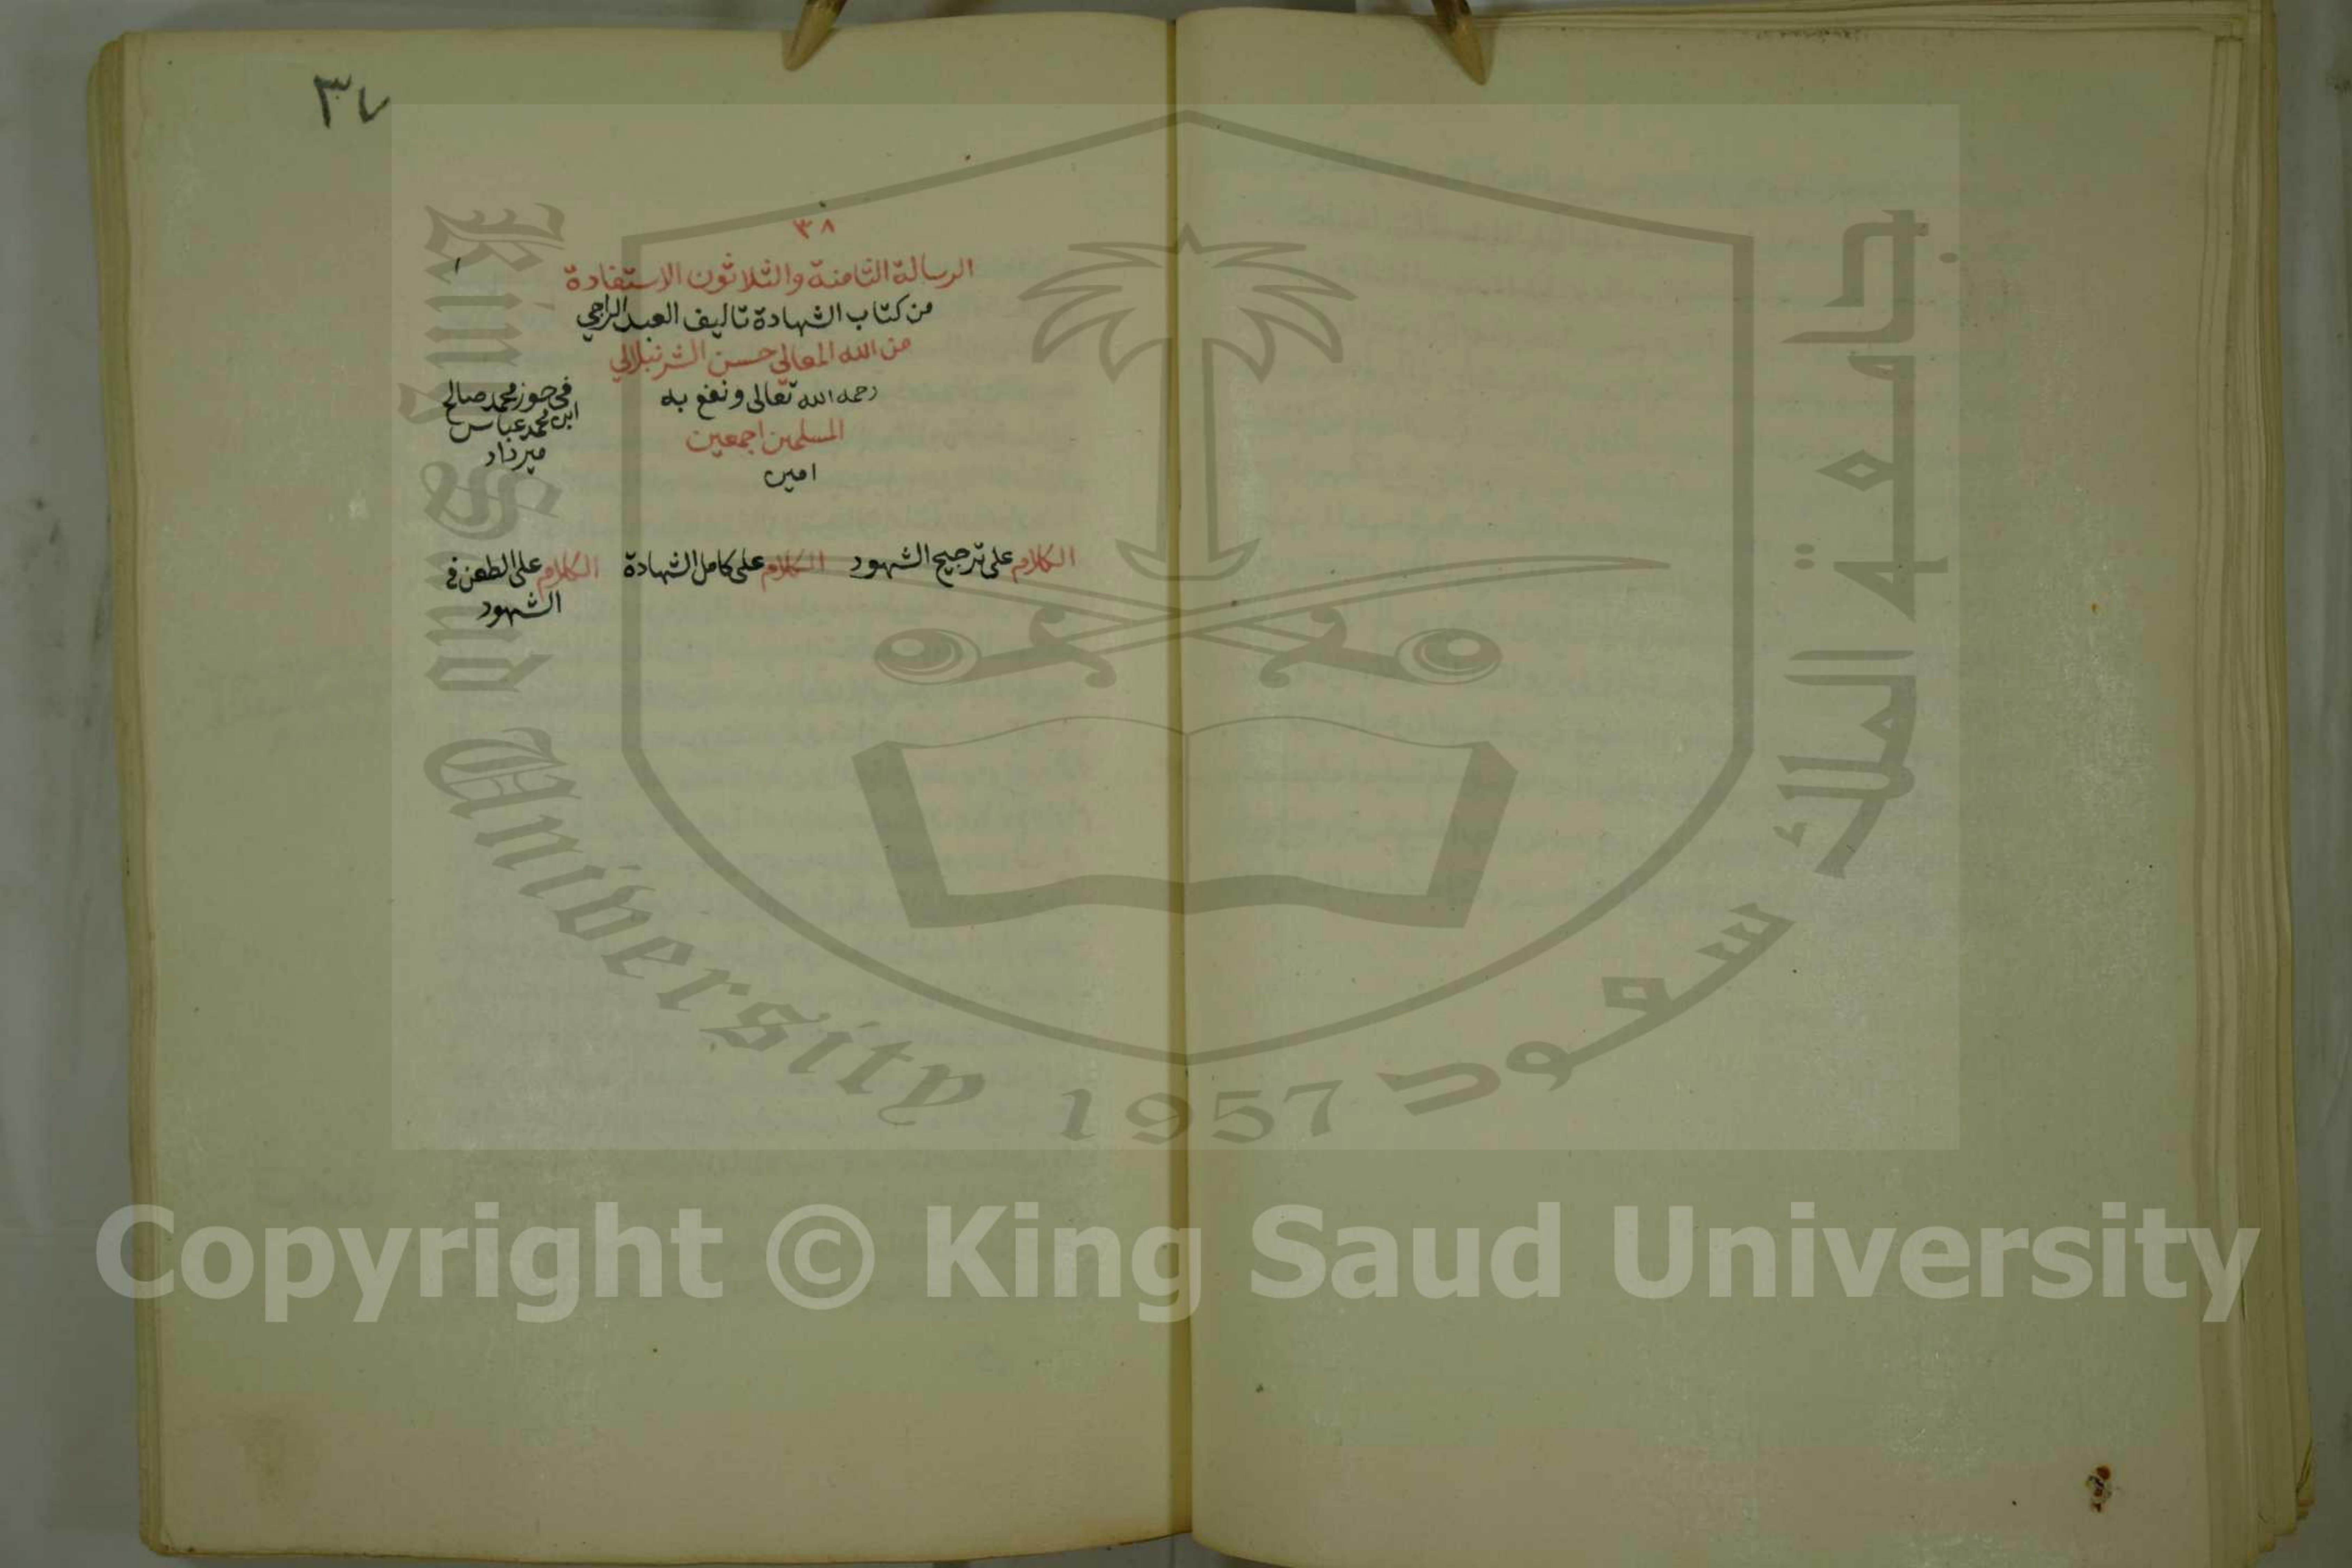 ٣٧
٣٨
١
الرسالة الثامنة والثلاثون الاستفادة
من كتاب الشهادة تاليف العبد الراجي
من الله المعالي حسن الشرنبلالي
رحمه الله تعالى ونفع به
المسلمين اجمعين
امين
في حوز محمد صالح
ابن محمد عباس
ميرداد
الكلام على ترجيح الشهود
الكلام على كامل الشهادة
الكلام على الطعن في
الشهود
King Saud University 1957
جامعة الملك سعود
Copyright © King Saud University